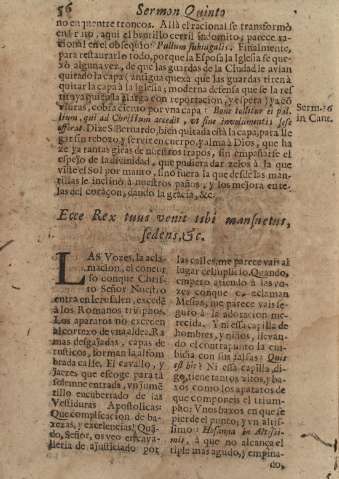 56 Sermon Quinto
no encuentre troncos. Allà el racional se transformò
en fiero, aqui el brutillo cerril indomito; parece ra-
cional en el obsequio: Pullum subiugalis. Finalmente,
para restaurarlo todo, porque la Esposa la Iglesia se que-
xò alguna vez, de que las guardas de la Ciudad le avian
quitado la capa (antigua quexa que las guardas tiren à
quitar la capa à la Iglesia; moderna defensa que se la res-
con reportacion, y espera) y a co
cobra ciento por vna capa: Bene tollitur ei pal-
lium, qui ad Christum accedit, ut sine
Serm. 
in Cant.
Dize S. Bernardo, bien quitada està la capa, para lle
gar sin rebozo, y servir en cuerpo, y alma à Dios, que ha
ze ya rantas giras de nuestros trapos, sin empañarse el
espejo de la divinidad, que pudiera dar zelos à la que
viste el Sol por manto, sino fuera la que desde las man-
tillas le inclinò à nuestros paños, y los mejora en te-
las del coraçon, dando la gracia, &c.
Ecce Rex tuus venit tibi mansuetus,
sedens, &c.
LAS Vozes, la acla-
macion, el concur
so conque Chris-
to Señor Nuestro
entra en Ierusalen, excede
à los Romanos triunphos.
Los aparatos no exceden
al cortexo de vna aldea. Ra
mas desgajadas, capas de
rusticos, forman la alfom
brada calle. El cavallo, y
jaezes que escoge para tà
solemne entrada, vn jume
tillo encubertado de las
Vestiduras Apostolicas:
Que complicacion de ba-
xezas, y excelencias! Quã-
do, Señor, os veo en cava-
lleria de ajusticiado por
las calles, me parece vais al
lugar del suplicio. Quando,
empero atiendo à las vo-
zes conque os aclaman
Mesias, me parece vais se-
guro à la adoracion me-
recida. Y ni essa capilla de
hombres, y niños, llevan-
do el contrapunto la em-
bidia con sus falsas: Quis
est hic? Ni essa capilla, di-
go, tiene tantos altos, y ba-
xos como los aparatos de
que componeis el triun-
pho: Vnos baxos en que se
pierde el punto, y vn altis-
simo: Hosanna in Altissi-
mis, à que no alcança el
tiple mas agudo, y empina-
do,